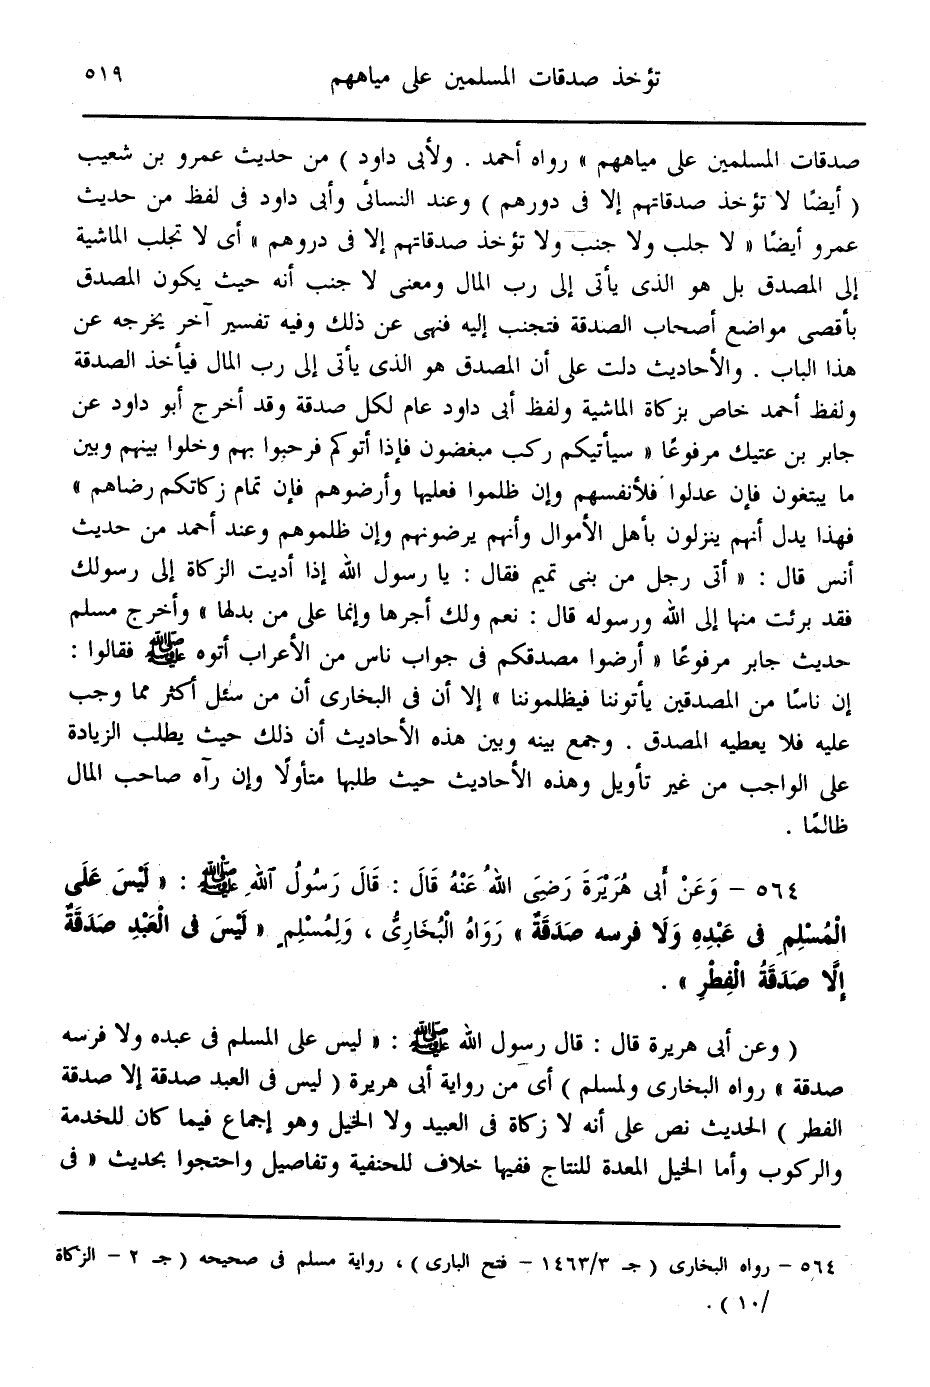 تؤخذ صدقات المسلمين على مياههم ٥١٩
صدقات المسلمين على مياههم » رواه أحمد . ولأبى داود ) من حديث عمرو بن شعيب
( أيضًا لا تؤخذ صدقاتهم إلا فى دورهم ) وعند النسائى وأبى داود فى لفظ من حديث
عمرو أيضًا « لا جلب ولا جنب ولا تؤخذ صدقاتهم إلا فى دروهم » أى لا تجلب الماشية
إلى المصدق بل هو الذى يأتى إلى رب المال ومعنى لا جنب أنه حيث يكون المصدق
بأقصى مواضع أصحاب الصدقة فتجنب إليه فنهى عن ذلك وفيه تفسير آخر يخرجه عن
هذا الباب . والأحاديث دلت على أن المصدق هو الذى يأتى إلى رب المال فيأخذ الصدقة
ولفظ أحمد خاص بزكاة الماشية ولفظ أبى داود عام لكل صدقة وقد أخرج أبو داود عن
جابر بن عتيك مرفوعًا « سيأتيكم ركب مبغضون فإذا أتوكم فرحبوا بهم وخلوا بينهم وبين
ما يبتغون فإن عدلوا فلأنفسهم وإن ظلموا فعليها وأرضوهم فإن تمام زكاتكم رضاهم »
فهذا يدل أنهم ينزلون بأهل الأموال وأنهم يرضونهم وإن ظلموهم وعند أحمد من حديث
أنس قال : « أتى رجل من بنى تميم فقال : يا رسول الله إذا أديت الزكاة إلى رسولك
فقد برئت منها إلى الله ورسوله قال : نعم ولك أجرها وإنما على من بدلها » وأخرج مسلم
حديث جابر مرفوعًا « أرضوا مصدقكم فى جواب ناس من الأعراب أتوه ﷺ فقالوا :
إن ناسًا من المصدقين يأتوننا فيظلموننا » إلا أن فى البخارى أن من سئل أكثر مما وجب
عليه فلا يعطيه المصدق . وجمع بينه وبين هذه الأحاديث أن ذلك حيث يطلب الزيادة
على الواجب من غير تأويل وهذه الأحاديث حيث طلبها متأولًا وإن رآه صاحب المال
ظالمًا .
٥٦٤ – وَعَنْ أَبى هُرَيْرَةَ رَضِىَ اللهُ عَنْهُ قَالَ : قَالَ رَسُولُ اللهِ ﷺ : « لَيْسَ عَلَى
الْمُسْلِمِ فى عَبْدِهِ وَلَا فرسه صَدَقَةٌ » رَوَاهُ الْبُخَارِىُّ ، وَلِمُسْلِمٍ « لَيْسَ فى الْعَبْدِ صَدَقَةٌ
إِلَّا صَدَقَةُ الْفِطْرِ » .
( وعن أبى هريرة قال : قال رسول الله ﷺ : « ليس على المسلم فى عبده ولا فرسه
صدقة » رواه البخارى ولمسلم ) أى من رواية أبى هريرة ( ليس فى العبد صدقة إلا صدقة
الفطر ) الحديث نص على أنه لا زكاة فى العبيد ولا الخيل وهو إجماع فيما كان للخدمة
والركوب وأما الخيل المعدة للنتاج ففيها خلاف للحنفية وتفاصيل واحتجوا بحديث « فى
٥٦٤ – رواه البخارى ( جـ ١٤٦٣/٣ – فتح البارى ) ، رواية مسلم فى صحيحه ( جـ ٢ – الزكاة
/١٠ ) .